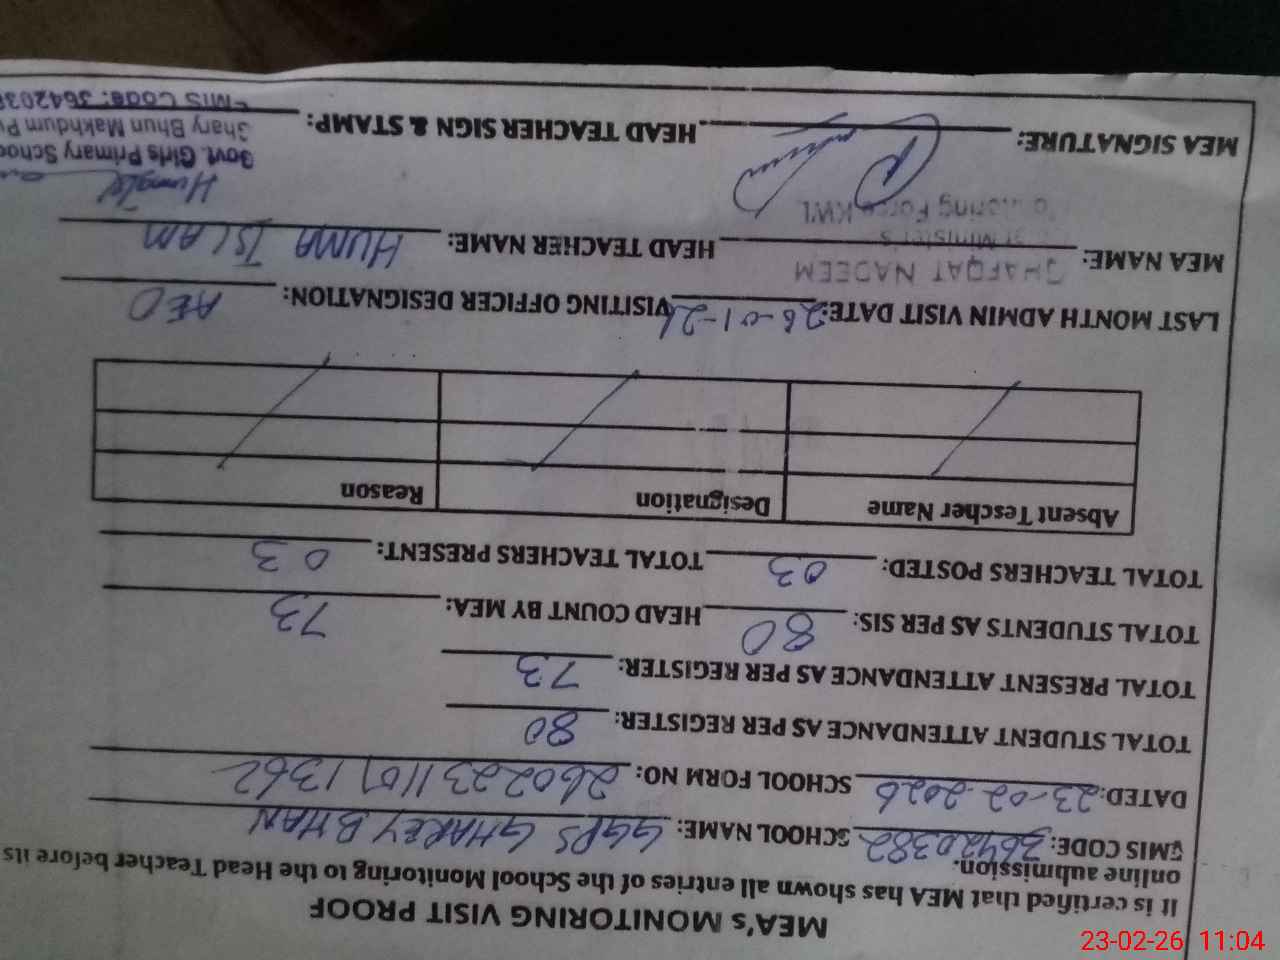 MEA's MONITORING VISIT PROOF
It is certified that MEA has shown all entries of the School Monitoring to the Head Teacher before its
online aubmission.
EMIS CODE: 36420382 SCHOOL NAME: GGPS GHAREY BHAN
DATED: 23-02-2026 SCHOOL FORM NO: 26022311071362
TOTAL STUDENT ATTENDANCE AS PER REGISTER: 80
TOTAL PRESENT ATTENDANCE AS PER REGISTER: 73
TOTAL STUDENTS AS PER SIS: 80 HEAD COUNT BY MEA: 73
TOTAL TEACHERS POSTED: 03 TOTAL TEACHERS PRESENT: 03
Absent Tescher Name Designation Reason
LAST MONTH ADMIN VISIT DATE: 26-01-26 VISITING OFFICER DESIGNATION: AEO
MEA NAME: SHAFQAT NADEEM HEAD TEACHER NAME: HUMA ISLAM
Monitoring Force KWL
MEA SIGNATURE: HEAD TEACHER SIGN & STAMP:
Govt. Girls Primary Schoo
Ghary Bhun Makhdum P
EMIS Code: 3642038
23-02-26 11:04